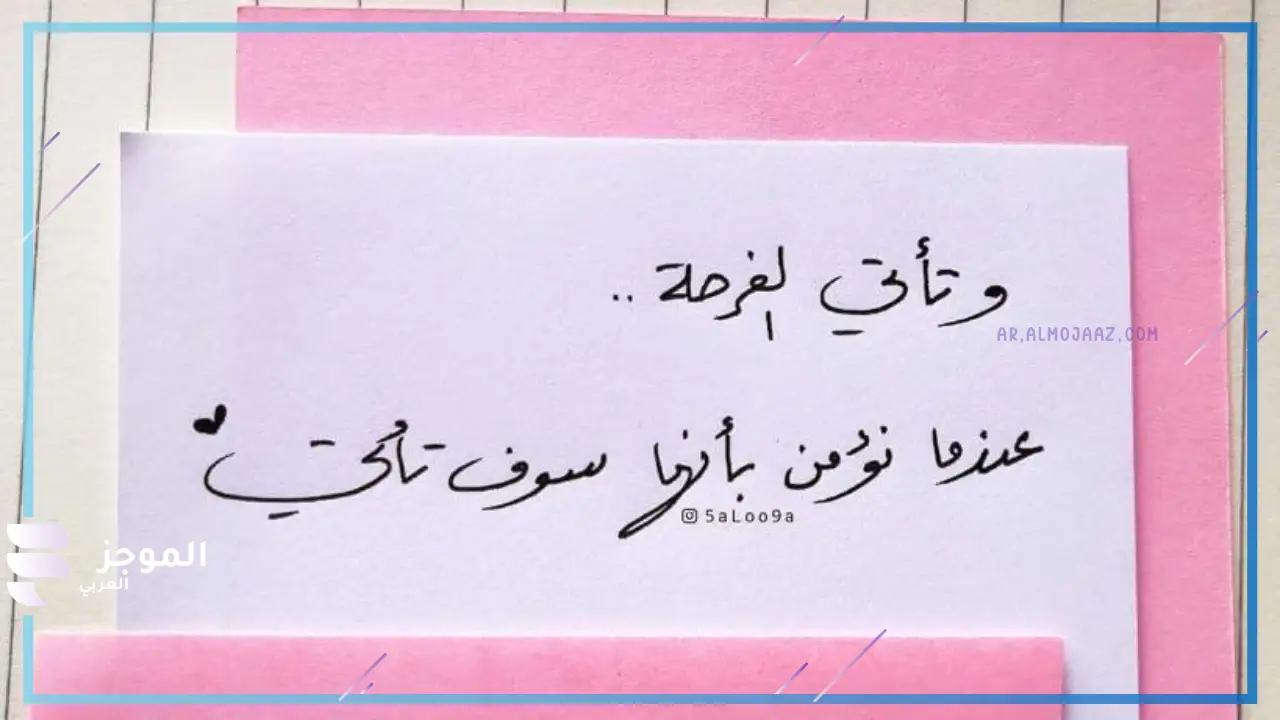 و تأتي الفرحة ..
AR.ALMOJAAZ.COM
عندما نؤمن بأنها سوف تأتي
5aLoo9a
الموجز
العربي